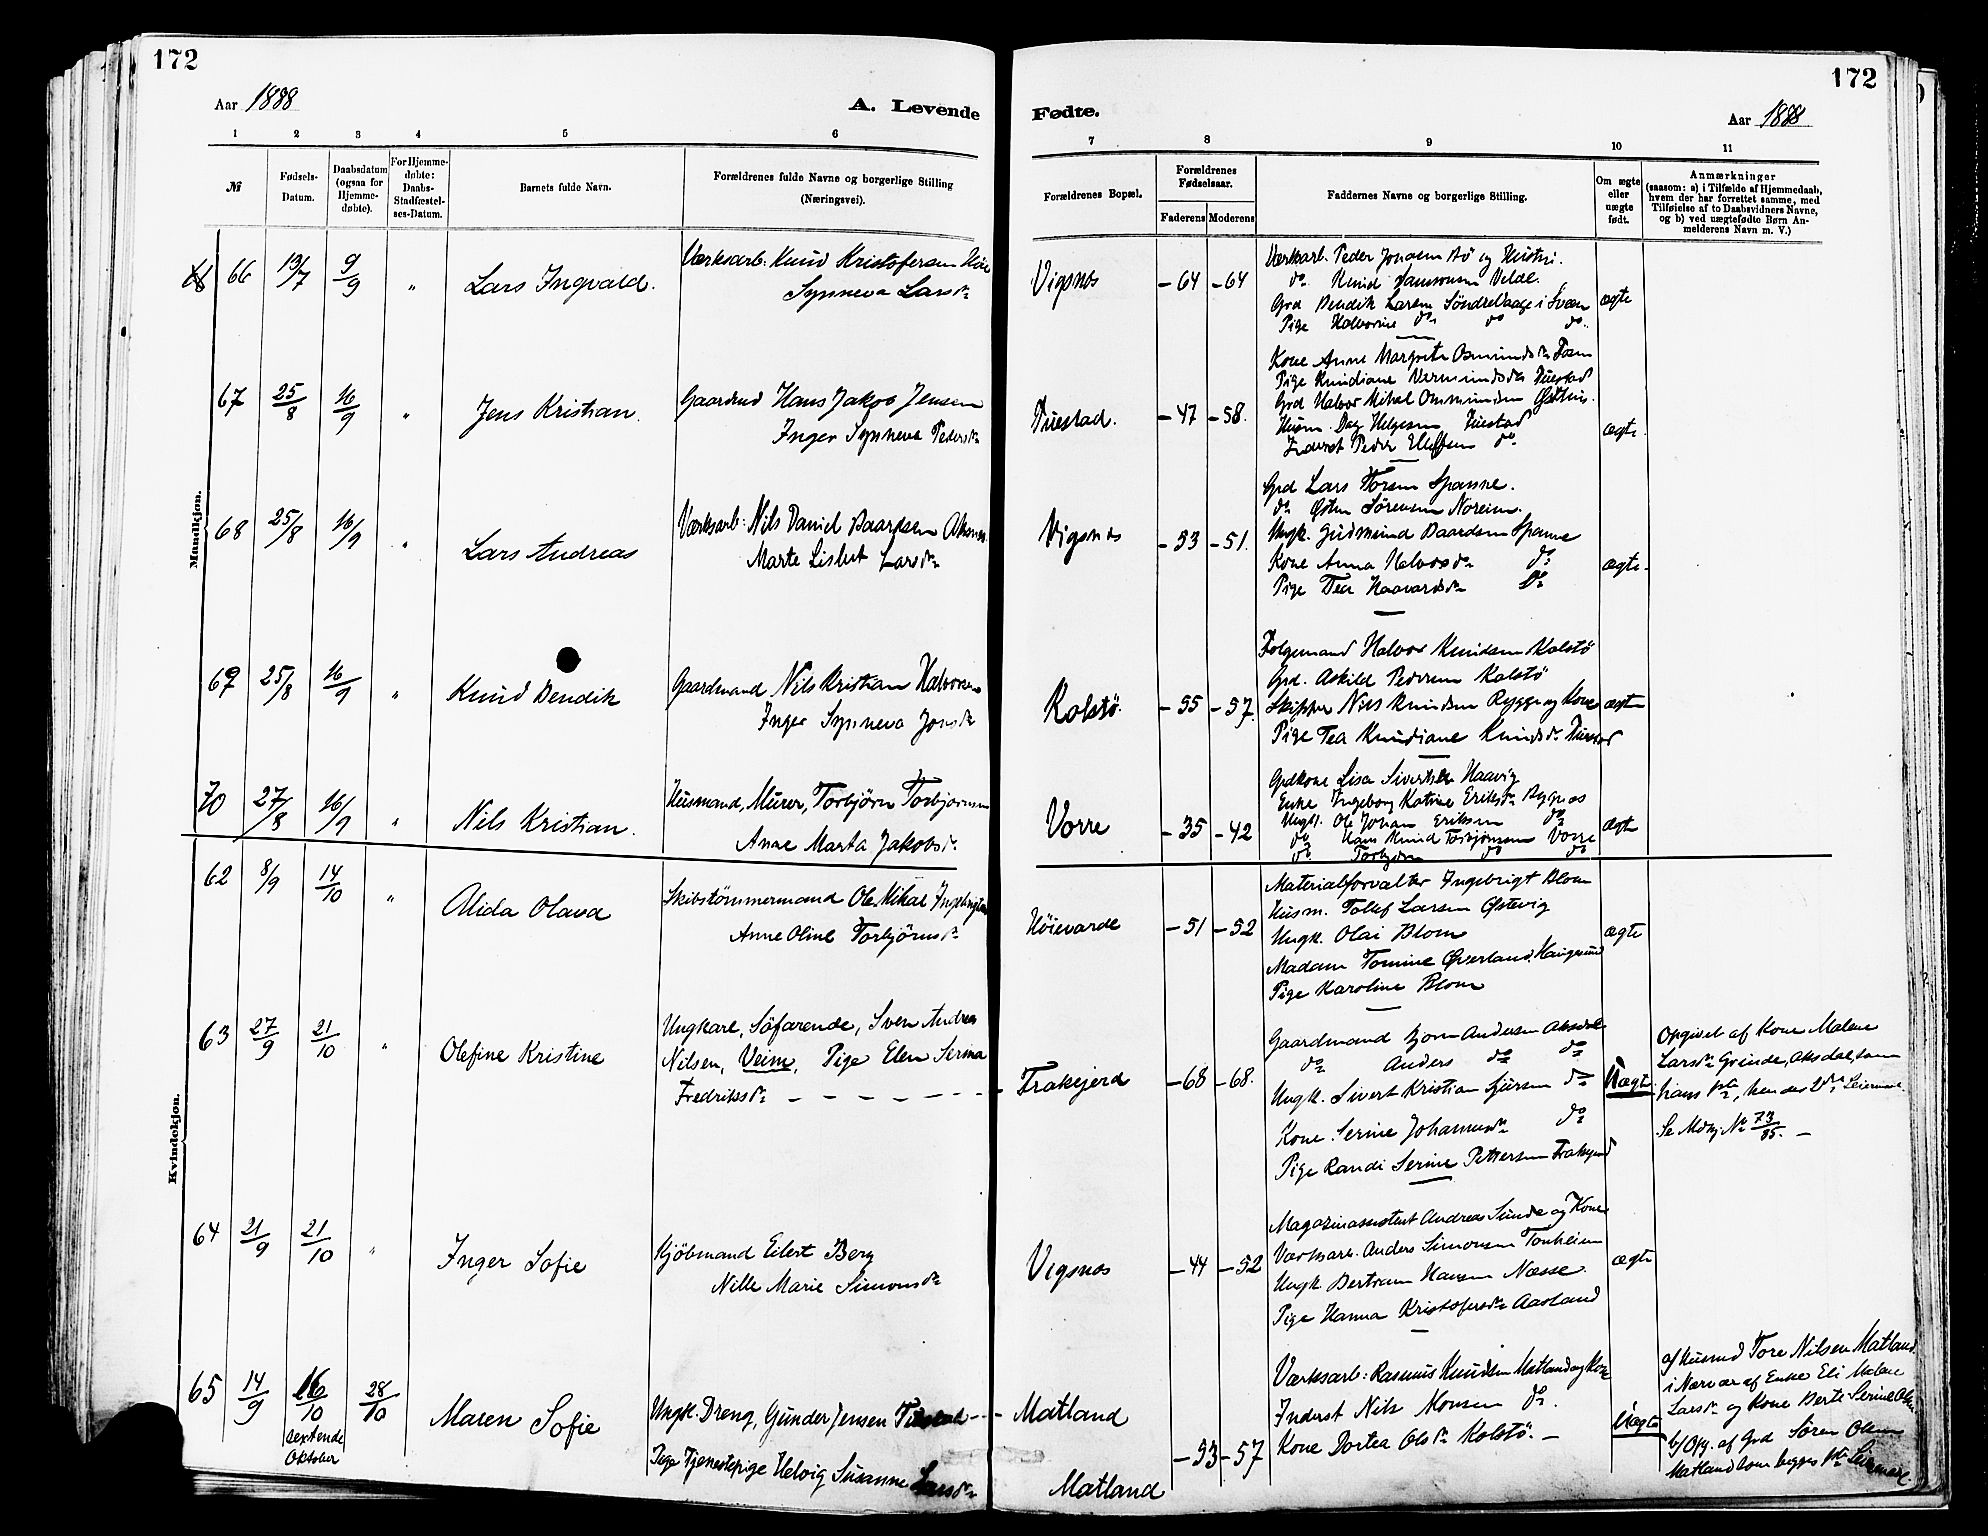 172
172
Aar 1888
A. Levende
Fødte.
Aar 1888
1 2 3 4 5 6 7 8 9 10 11
№
Fødsels-
Datum.
Daabsdatum
(ogsaa for
Hjemme-
døbte).
For Hjemme-
døbte:
Daabs-
Stadfæstel-
ses-Datum.
Barnets fulde Navn.
Forældrenes fulde Navne og borgerlige Stilling
(Næringsvei).
Forældrenes Bopæl.
Forældrenes
Fødselsaar.
Faderens Moderens
Faddernes Navne og borgerlige Stilling.
Om ægte
eller
uægte
født.
Anmærkninger
(saasom: a) i Tilfælde af Hjemmedaab,
hvem der har forrettet samme, med
Tilføielse af to Daabsvidners Navne,
og b) ved uægtefødte Børn An-
melderens Navn m. V.)
Mandkjøn.
66 13/7 9/9 "
Lars Ingvald.
Værksarb: Knud Kristofersen
Synneva Larsdr
Vigsnes
-64 -64
Værksarb. Peder Jonasen Bø og Hustru.
do Knud Samsonsen Velde.
Grd Bendik Larsen Søndre Vaage i Sveen
Pige Halvorine do do do.
ægte
67 25/8 16/9 "
Jens Kristian.
Gaardmd Hans Jakob Jensen
Inger Synneva Pedersdr
Tuestad.
-47 -58.
Kone Anne Margrete Osmundsdr
Pige Knudiane Vermundsdr Tuestad
Grd Halvor Mikal Ommundsen Østhus.
Husm. Dag Helgesen Tuestad
Inderst Peder Ellefsen do
ægte.
68 25/8 16/9 "
Lars Andreas
Værksarb: Nils Daniel Baardsen
Marte Lisbet Larsdr
Vigsnes
-53 -51.
Grd Lars Toresen Spanne.
do Østen Sørensen Noreim.
Ungk. Gudmund Baardsen Spanne
Kone Anna Halvorsdr do
Pige Tea Haavardsdr do
ægte.
69 25/8 16/9 "
Knud Bendik
Gaardmand Nils Kristian Halvorsen
Inger Synneva Jonsdr
Kolstø.
-55 -57.
Folgemand Halvor Knudsen Kolstø
Grd. Askild Pedersen Kolstø
Skipper Nils Knudsen Rygge og Kone
Pige Tea Knudiane Knudsdr Tuestad
ægte
70 27/8 16/9 "
Nils Kristian.
Husmand, Murer, Torbjørn Torbjørnsen
Anne Marta Jakobsdr
Vorre
-35 -42
Grdkone Lisa Sivertsdr Haavig
Enke Ingeborg Katrine Eriksdr Bygnes
Ungk. Ole Johan Eriksen do
do Hans Knud Torbjørnsen Vorre
do Torbjørn do do
ægte
Kvindekjøn.
62 8/9 14/10 "
Alida Olava
Skibstømmermand Ole Mikal Ingebrigtsen
Anne Oline Torbjørnsdr
Høievarde
-51 -52
Materialforvalter Ingebrigt Blom
Husm. Tollef Larsen Østevig
Ungk. Olai Blom
Madam Tomine Øverland, Haugesund
Pige Karoline Blom
ægte
63 27/9 21/10 "
Olefine Kristine
Ungkarl, Søfarende, Sven Andreas
Nilsen, Veim, Pige Elen Serina
Fredriksdr
Frakejerd
-68 -68.
Gaardmand Bjørn Andersen Aksdal
do Anders do do
Ungk. Sivert Kristian Sjursen do
Kone Serine Johannesdr do
Pige Randi Serine Pettersen Frakejerd
Uægte
Opgivet af Kone Malene
Larsdr Grinde, Aksdal, som
hans 1ste, hendes 2den Leiermaal.
Se Mdkj. No 73/85.
64 21/9 21/10 "
Inger Sofie
Kjøbmand Eilert Berg
Nille Marie Simonsdr
Vigsnes
-44 -52
Magazinassistent Andreas Sunde og Kone
Værksarb. Anders Simonsen Tonheim
Ungk. Bertram Hansen Næsse.
Pige Hanna Kristofersdr Aasland
ægte
65 14/9 16/10 28/10
sextende
Oktober
Maren Sofie
Ungk. Dreng, Gunder Jensen
Pige Tjenestepige Helvig Susanne Larsdr
Matland
Matland
-53 -57
Værksarb: Rasmus Knudsen Matland og Kone
Inderst Nils Monsen do.
Kone Dortea Olsdr Kolstø.
Uægte
af Husmd Tore Nilsen Matland
i Nærvær af Enke Eli Malene
Larsdr og Kone Berte Serine Olsdr
b/ Opg. af Grd Søren Olsen
Matland som begges 1ste Leiermaal.